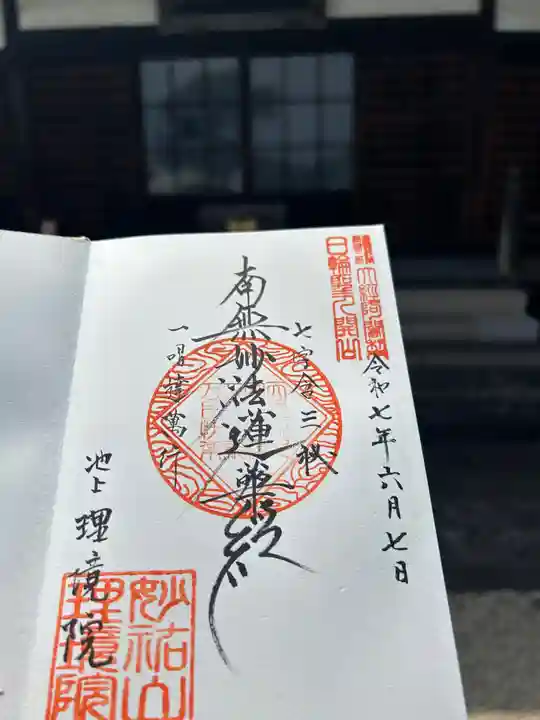 令和七年六月七日
七字含三秘
南無妙法蓮華経
一唱達萬行
池上 理境院
日輪聖人開山
妙祐山
理境院